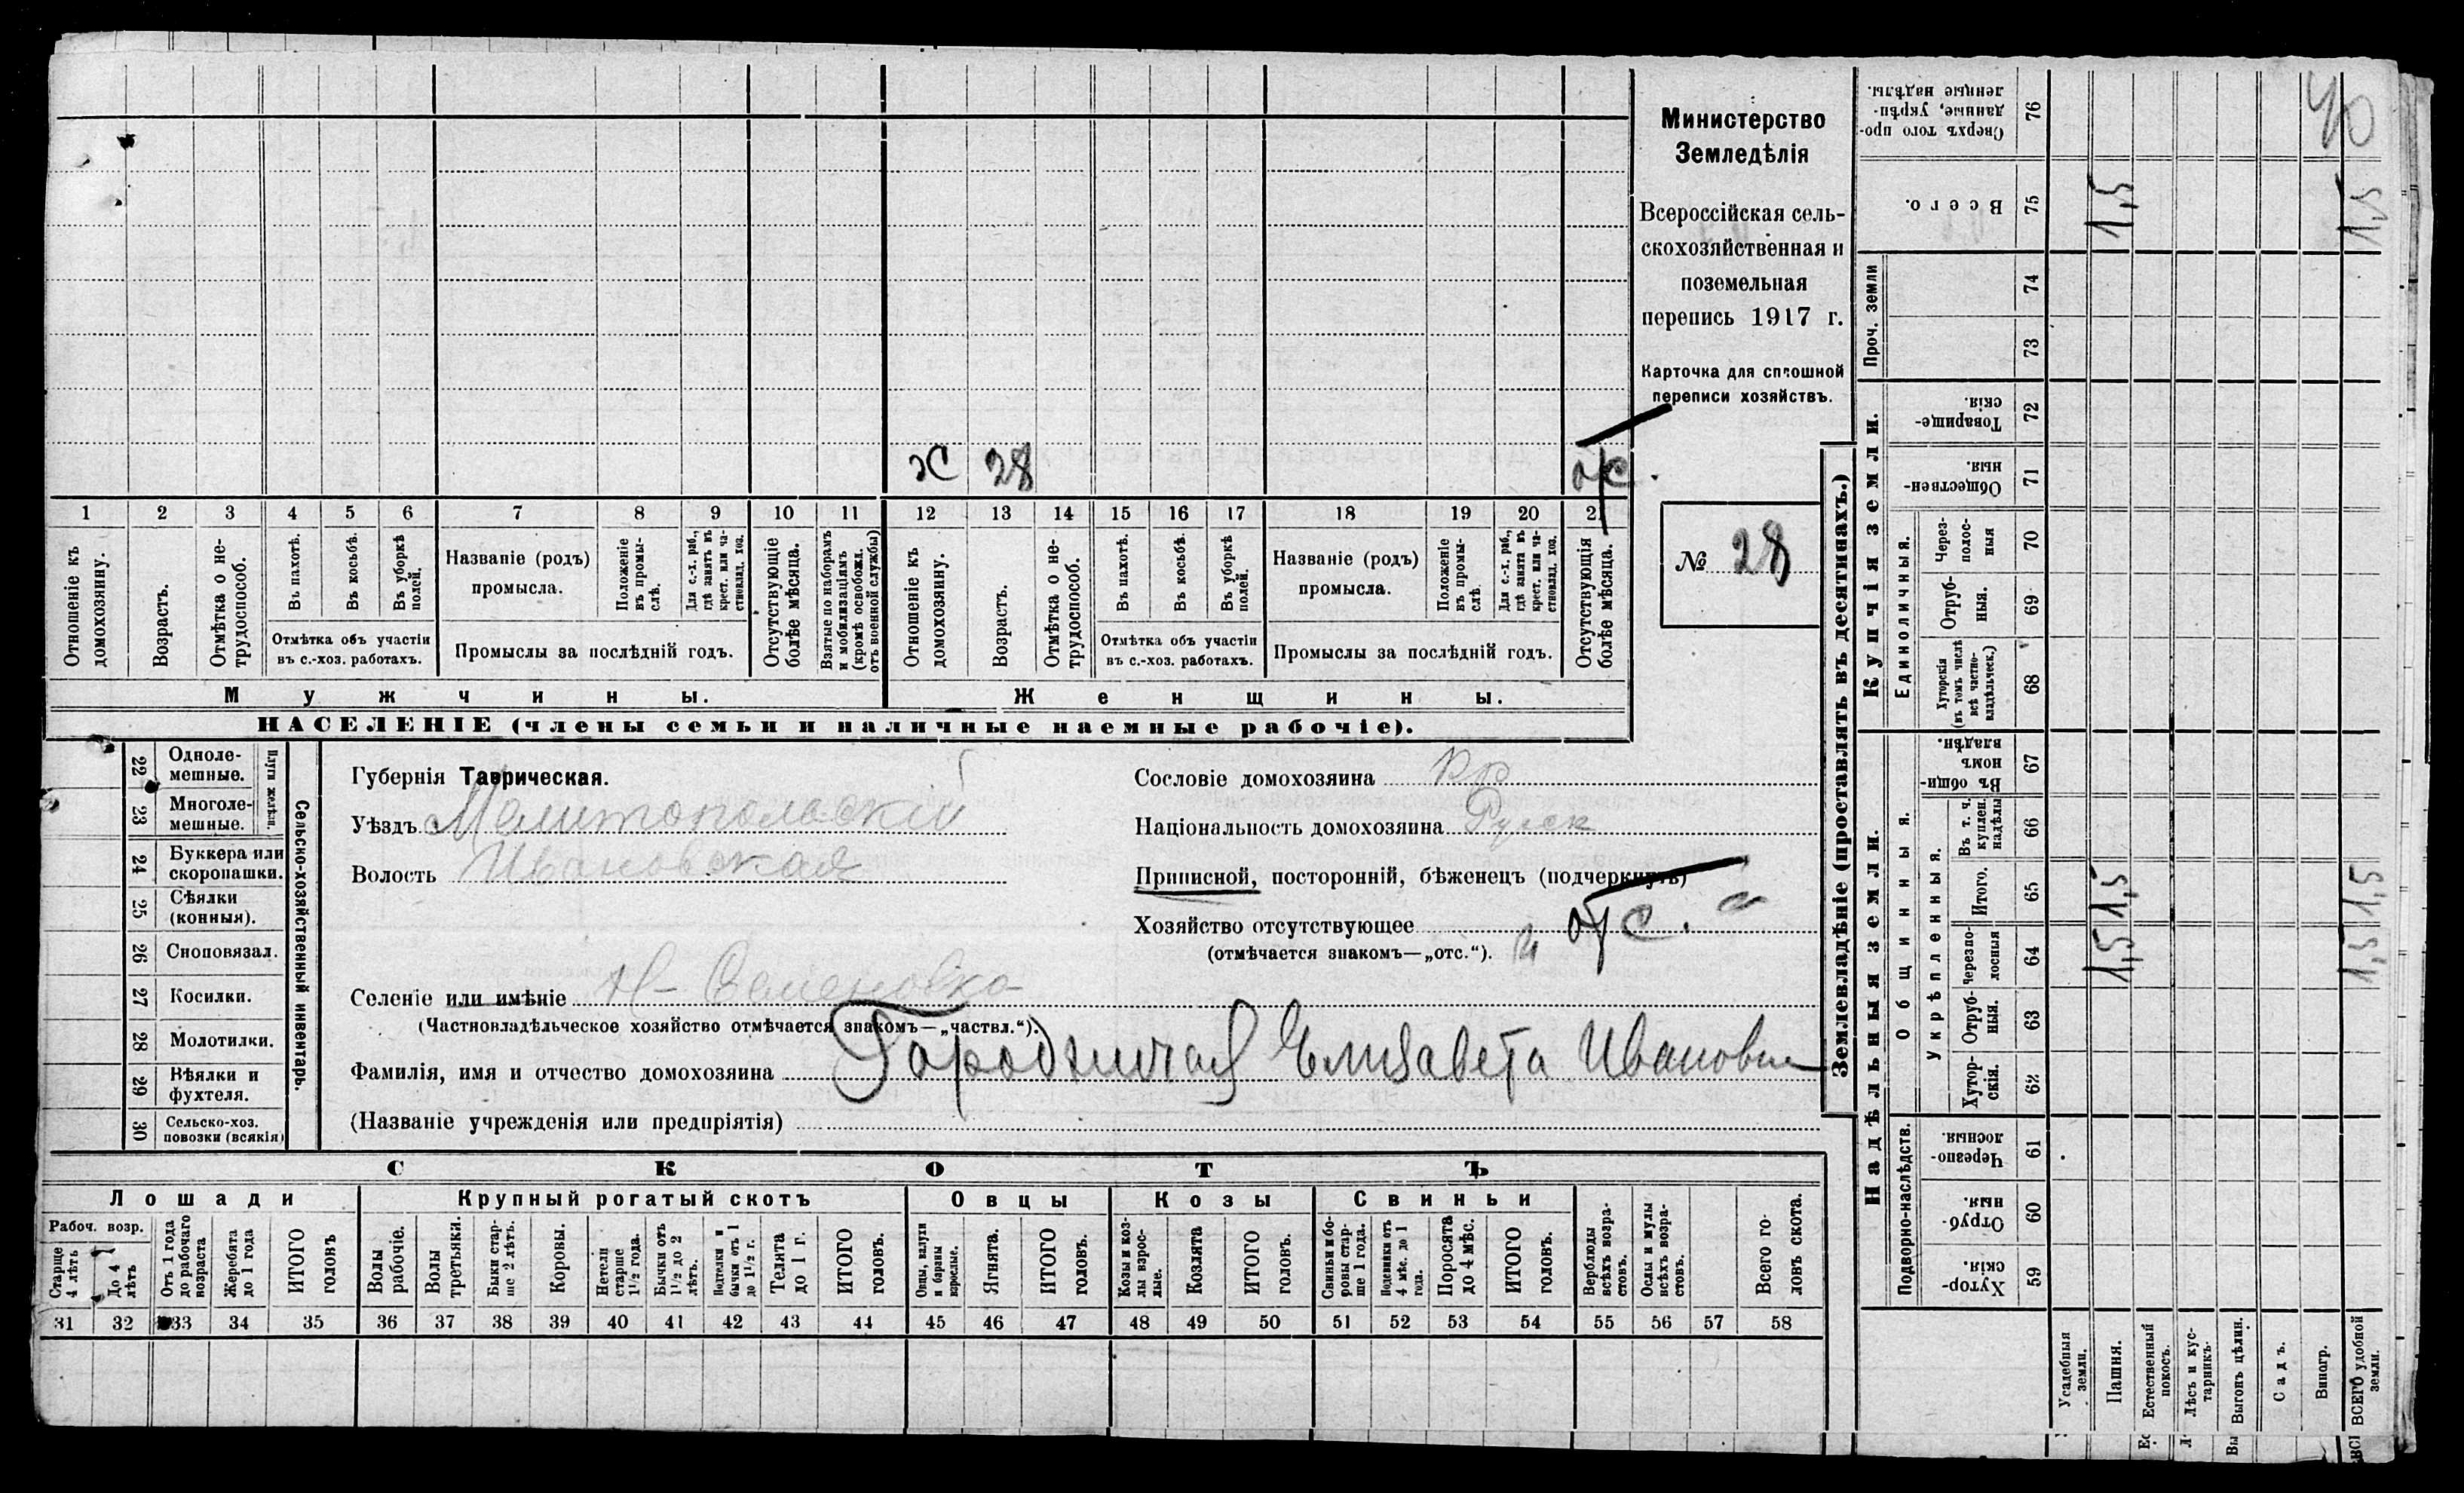 Министерство
Земледѣлія
Всероссійская сель-
скохозяйственная и
поземельная
перепись 1917 г.
Карточка для сплошной
переписи хозяйствъ.
№ 28
ж 28 отс.
1 2 3 4 5 6 7 8 9 10 11 12 13 14 15 16 17 18 19 20 2
Отношеніе къ домохозяину.
Возрастъ.
Отмѣтка о не-трудоспособ.
Въ пахотѣ.
Въ косьбѣ.
Въ уборкѣ полей.
Отмѣтка объ участіи въ с.-хоз. работахъ.
Названіе (родъ) промысла.
Положеніе въ промы-слѣ.
Для с.-х. раб., гдѣ занятъ въ крест. или ча-стновлад. хоз.
Промыслы за послѣдній годъ.
Отсутствующіе болѣе мѣсяца.
Взятые по наборамъ и мобилизаціямъ (кромѣ освобожд. отъ военной службы)
Отношеніе къ домохозяину.
Возрастъ.
Отмѣтка о не-трудоспособ.
Въ пахотѣ.
Въ косьбѣ.
Въ уборкѣ полей.
Отмѣтка объ участіи въ с.-хоз. работахъ.
Названіе (родъ) промысла.
Положеніе въ промы-слѣ.
Для с.-х. раб., гдѣ занята въ крест. или ча-стновлад. хоз.
Промыслы за послѣдній годъ.
Отсутствующія болѣе мѣсяца.
Мужчины.
Женщины.
НАСЕЛЕНІЕ (члены семьи и наличные наемные рабочіе).
Сельско-хозяйственный инвентарь.
Плуги желѣзн.
22 Одноле-мешные.
23 Многоле-мешные.
24 Буккера или скоропашки.
25 Сѣялки (конныя).
26 Сноповязал.
27 Косилки.
28 Молотилки.
29 Вѣялки и фухтеля.
30 Сельско-хоз. повозки (всякія)
Губернія Таврическая.
Уѣздъ Мелитопольскій
Волость Ивановская
Селеніе или имѣніе Н-Семеновка
(Частновладѣльческое хозяйство отмѣчается знакомъ—„частвл.“).
Фамилія, имя и отчество домохозяина Елизавета Ивановна
(Названіе учрежденія или предпріятія)
Сословіе домохозяина кр
Національность домохозяина Русск
Приписной, посторонній, бѣженецъ (подчеркнуть)
Хозяйство отсутствующее отс.
(отмѣчается знакомъ—„отс.“).
СКОТЪ
Лошади
Крупный рогатый скотъ
Овцы
Козы
Свиньи
Рабоч. возр.
Старше 4 лѣтъ
До 4 лѣтъ
Отъ 1 года до рабочаго возраста
Жеребята до 1 года
ИТОГО головъ
Волы рабочіе.
Волы третьяки.
Быки стар-ше 2 лѣтъ.
Коровы.
Нетели старше 1½ года.
Бычки отъ 1½ до 2 лѣтъ.
Подтелки и бычки отъ 1 до 1½ г.
Телята до 1 г.
ИТОГО головъ.
Овцы, валухи и бараны взрослые.
Ягнята.
ИТОГО головъ.
Козы и коз-лы взрос-лые.
Козлята
ИТОГО головъ.
Свиньи и бо-ровы стар-ше 1 года.
Подсвинки отъ 4 мѣс. до 1 года.
Поросята до 4 мѣс.
ИТОГО головъ.
Верблюды всѣхъ возра-стовъ.
Ослы и мулы всѣхъ возра-стовъ.
Всего го-ловъ скота.
31 32 33 34 35 36 37 38 39 40 41 42 43 44 45 46 47 48 49 50 51 52 53 54 55 56 57 58
Землевладѣніе (проставлять въ десятинахъ.)
Надѣльныя земли.
Купчія земли.
Проч. земли
Подворно-наслѣдств.
Общинныя.
Укрѣпленныя.
Единоличныя.
59 Хутор-скія.
60 Отруб-ныя.
61 Черезпо-лосныя.
62 Хутор-скія.
63 Отруб-ныя.
64 Черезпо-лосныя 1,5 1,5
65 Итого. 1,5 1,5
66 Въ т. ч. куплен. надѣлы
67 Въ общи-номъ владѣн.
68 Хуторскія (въ томъ числѣ всѣ частно-владѣльческ.)
69 Отруб-ныя.
70 Через-полос-ныя
71 Обществен-ныя.
72 Товарище-скія.
73
74
75 Всего. 1,5 1,5
76 Сверхъ того про-данные, укрѣп-ленные надѣлы.
40
Усадебныя земли.
Пашня.
Естественный покосъ.
Лѣсъ и кус-тарникъ.
Выгонъ цѣлин.
Садъ.
Виногр.
ВСЕГО удобной земли.